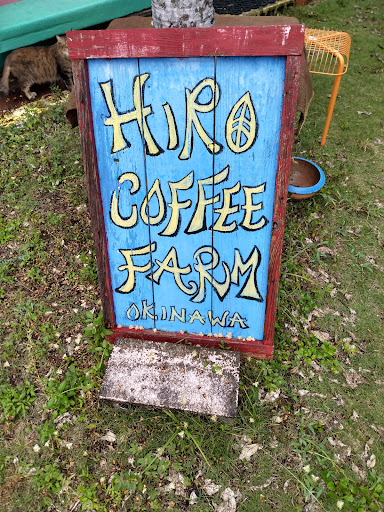 HIRO
COFFEE
FARM
OKINAWA